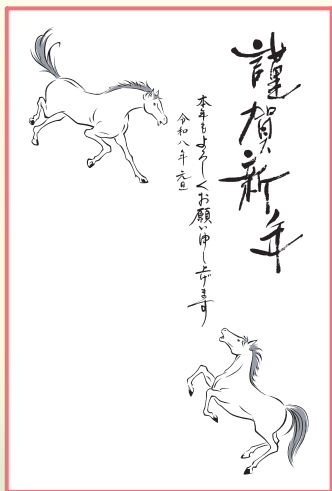 謹賀新年
本年もよろしくお願い申し上げます
令和八年 元旦